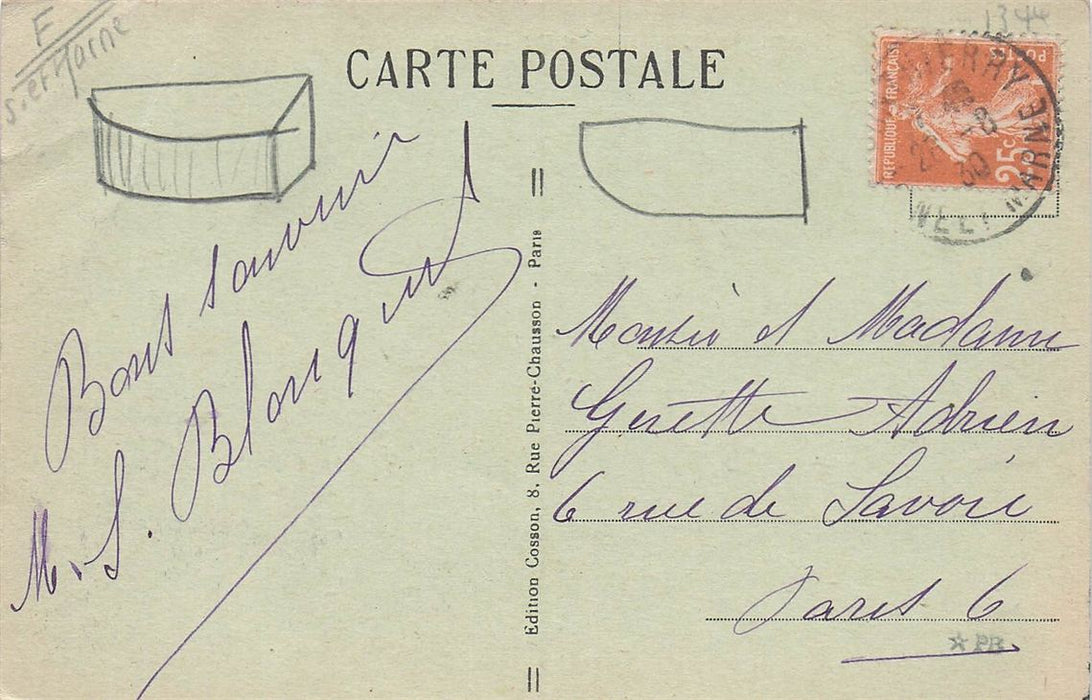 F
S. et Marne
1344
CARTE POSTALE
REPUBLIQUE FRANÇAISE
POSTES
25c
MARNE
Bons souvenir
M. S. Blanquet
Edition Cosson, 8, Rue Pierre-Chausson - Paris
Monsie et Madame
Adrien
6 rue de Savoie
Paris 6
PB